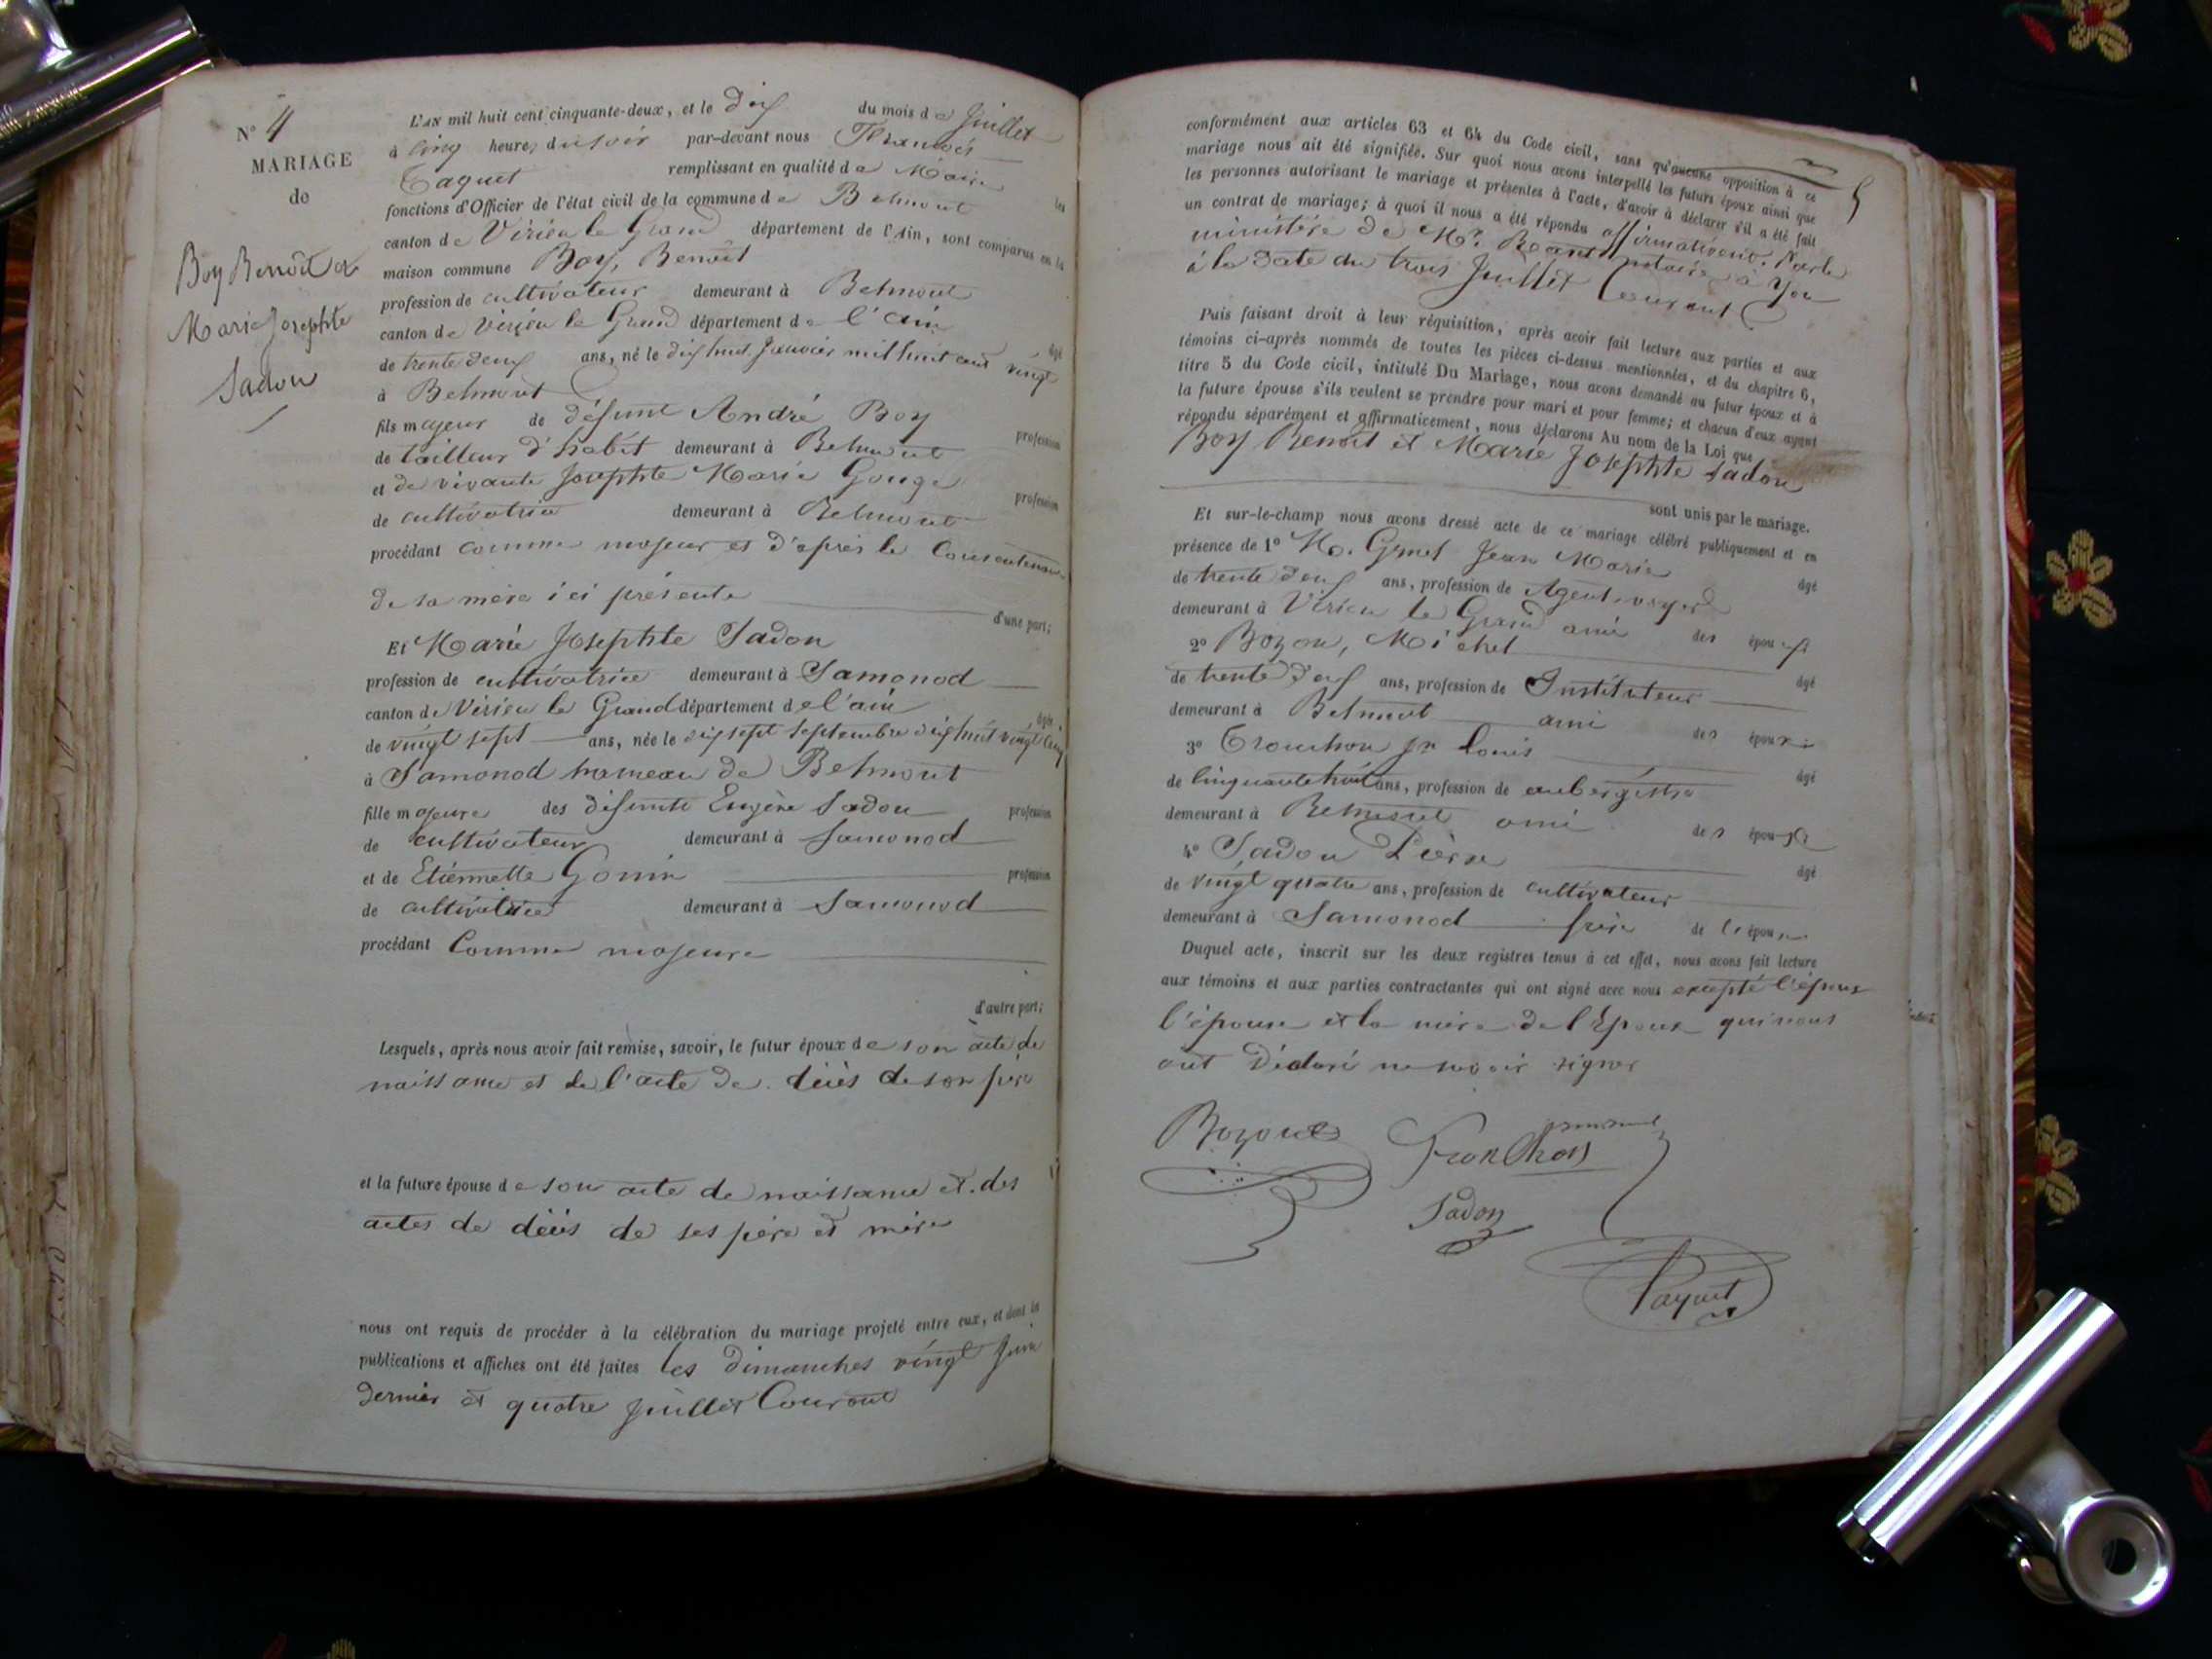 N° 4
MARIAGE
de
Boy Benoît et
Marie Josephte
Sadon
L'AN mil huit cent cinquante-deux, et le dix du mois de Juillet
à cinq heures du soir par-devant nous François
Taquet remplissant en qualité de Maire les
fonctions d'Officier de l'état civil de la commune de Belmont
canton de Virieu le Grand département de l'Ain, sont comparus en la
maison commune Boy, Benoît
profession de cultivateur demeurant à Belmont
canton de Virieu le Grand département de l'ain âgé
de trente deux ans, né le dix huit Janvier mil huit cent vingt
à Belmont
fils majeur de défunt André Boy profession
de tailleur d'habit demeurant à Belmont
et de vivante Josephte Marie Gouge profession
de cultivatrice demeurant à Belmont
procédant comme majeur et d'après le Consentement
de sa mère ici présente d'une part;
Et Marie Josephte Sadon
profession de cultivatrice demeurant à Samonod
canton de Virieu le Grand département de l'ain âgée
de vingt sept ans, née le dix sept septembre dix huit vingt cinq
à Samonod hameau de Belmont
fille majeure des défunts Eugène Sadon profession
de cultivateur demeurant à Samonod
et de Etiennette Gonin profession
de cultivatrice demeurant à Samonod
procédant Comme majeure
d'autre part;
Lesquels, après nous avoir fait remise, savoir, le futur époux de son acte de
naissance et de l'acte de décès de son père
et la future épouse de son acte de naissance et des
actes de décès de ses père et mère
nous ont requis de procéder à la célébration du mariage projeté entre eux, et dont les
publications et affiches ont été faites les dimanches vingt Juin
dernier et quatre Juillet Courant
conformément aux articles 63 et 64 du Code civil, sans qu'aucune opposition à ce
mariage nous ait été signifiée. Sur quoi nous avons interpellé les futurs époux ainsi que
les personnes autorisant le mariage et présentes à l'acte, d'avoir à déclarer s'il a été fait
un contrat de mariage; à quoi il nous a été répondu affirmativement. Par le
ministère de Mr. notaire à Yon
à la date du trois Juillet Courant
Puis faisant droit à leur réquisition, après avoir fait lecture aux parties et aux
témoins ci-après nommés de toutes les pièces ci-dessus mentionnées, et du chapitre 6,
titre 5 du Code civil, intitulé Du Mariage, nous avons demandé au futur époux et à
la future épouse s'ils veulent se prendre pour mari et pour femme; et chacun d'eux ayant
répondu séparément et affirmativement, nous déclarons Au nom de la Loi que
Boy Benoît et Marie Josephte Sadon
sont unis par le mariage.
Et sur-le-champ nous avons dressé acte de ce mariage célébré publiquement et en
présence de 1° M. Jean Marie âgé
de trente deux ans, profession de Agent voyer
demeurant à Virieu le Grand ami des époux
2° Bozon, Michel âgé
de trente deux ans, profession de Instituteur
demeurant à Belmont ami des époux
3° Tronchon Jn Louis âgé
de cinquante huit ans, profession de aubergiste
demeurant à Belmont ami des époux
4° Sadon Pierre âgé
de vingt quatre ans, profession de cultivateur
demeurant à Samonod frère de l'épouse
Duquel acte, inscrit sur les deux registres tenus à cet effet, nous avons fait lecture
aux témoins et aux parties contractantes qui ont signé avec nous excepté l'époux
l'épouse et la mère de l'Epoux qui nous
ont Déclaré ne savoir signer
Bozon
Tronchon
Sadon
Taquet